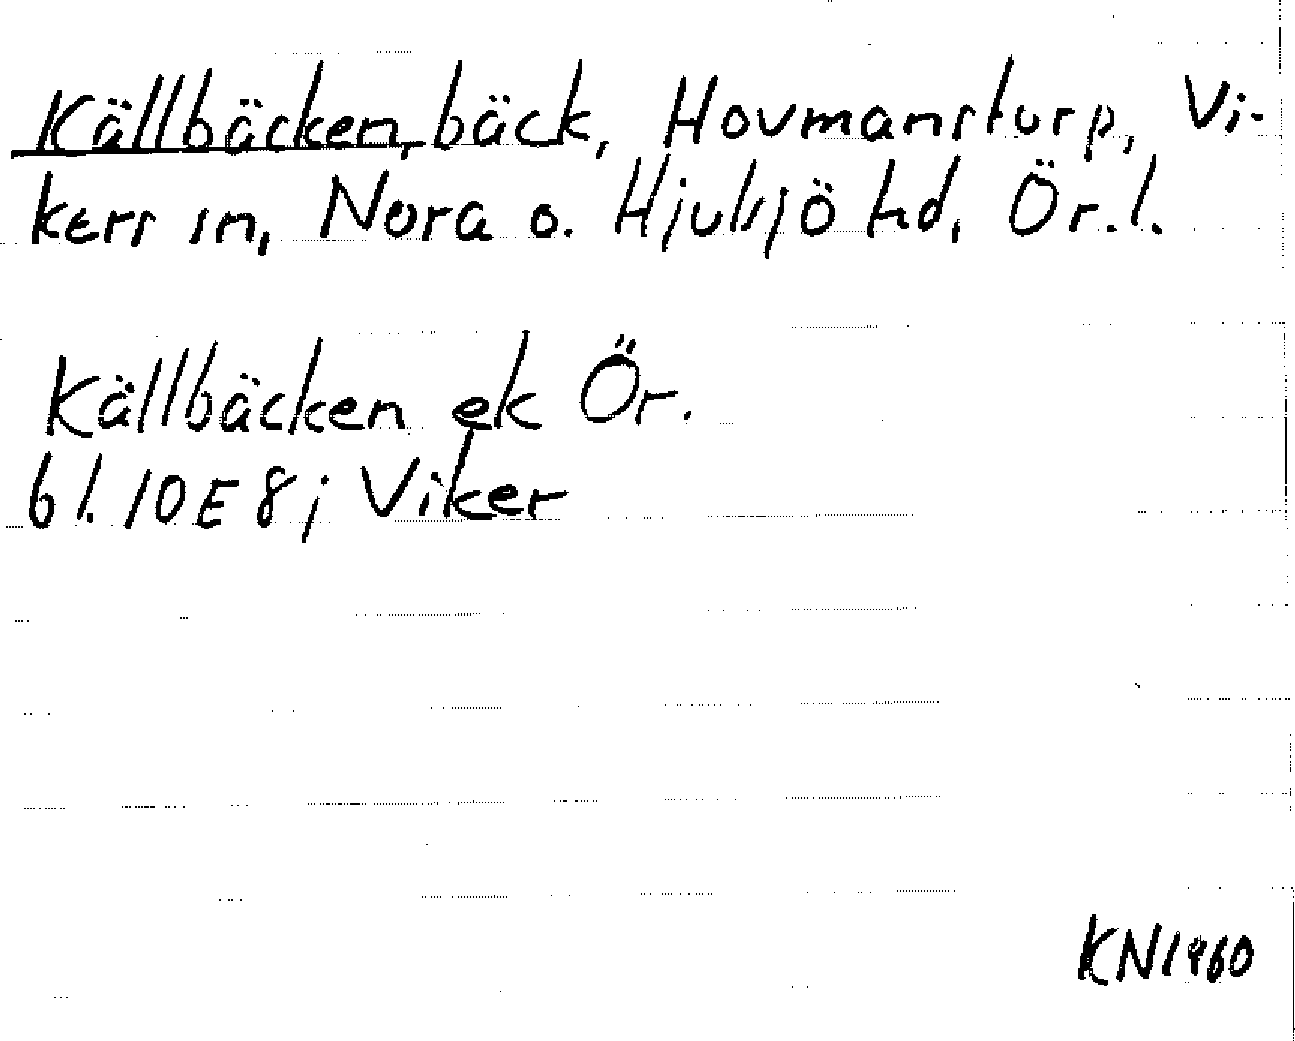 Källbäcken, bäck, Hovmanstorp, Vi-
kers sn, Nora o. Hjulsjö hd, Ör. l.
Källbäcken ek Ör.
bl. 10E 8j Viker
KN1960